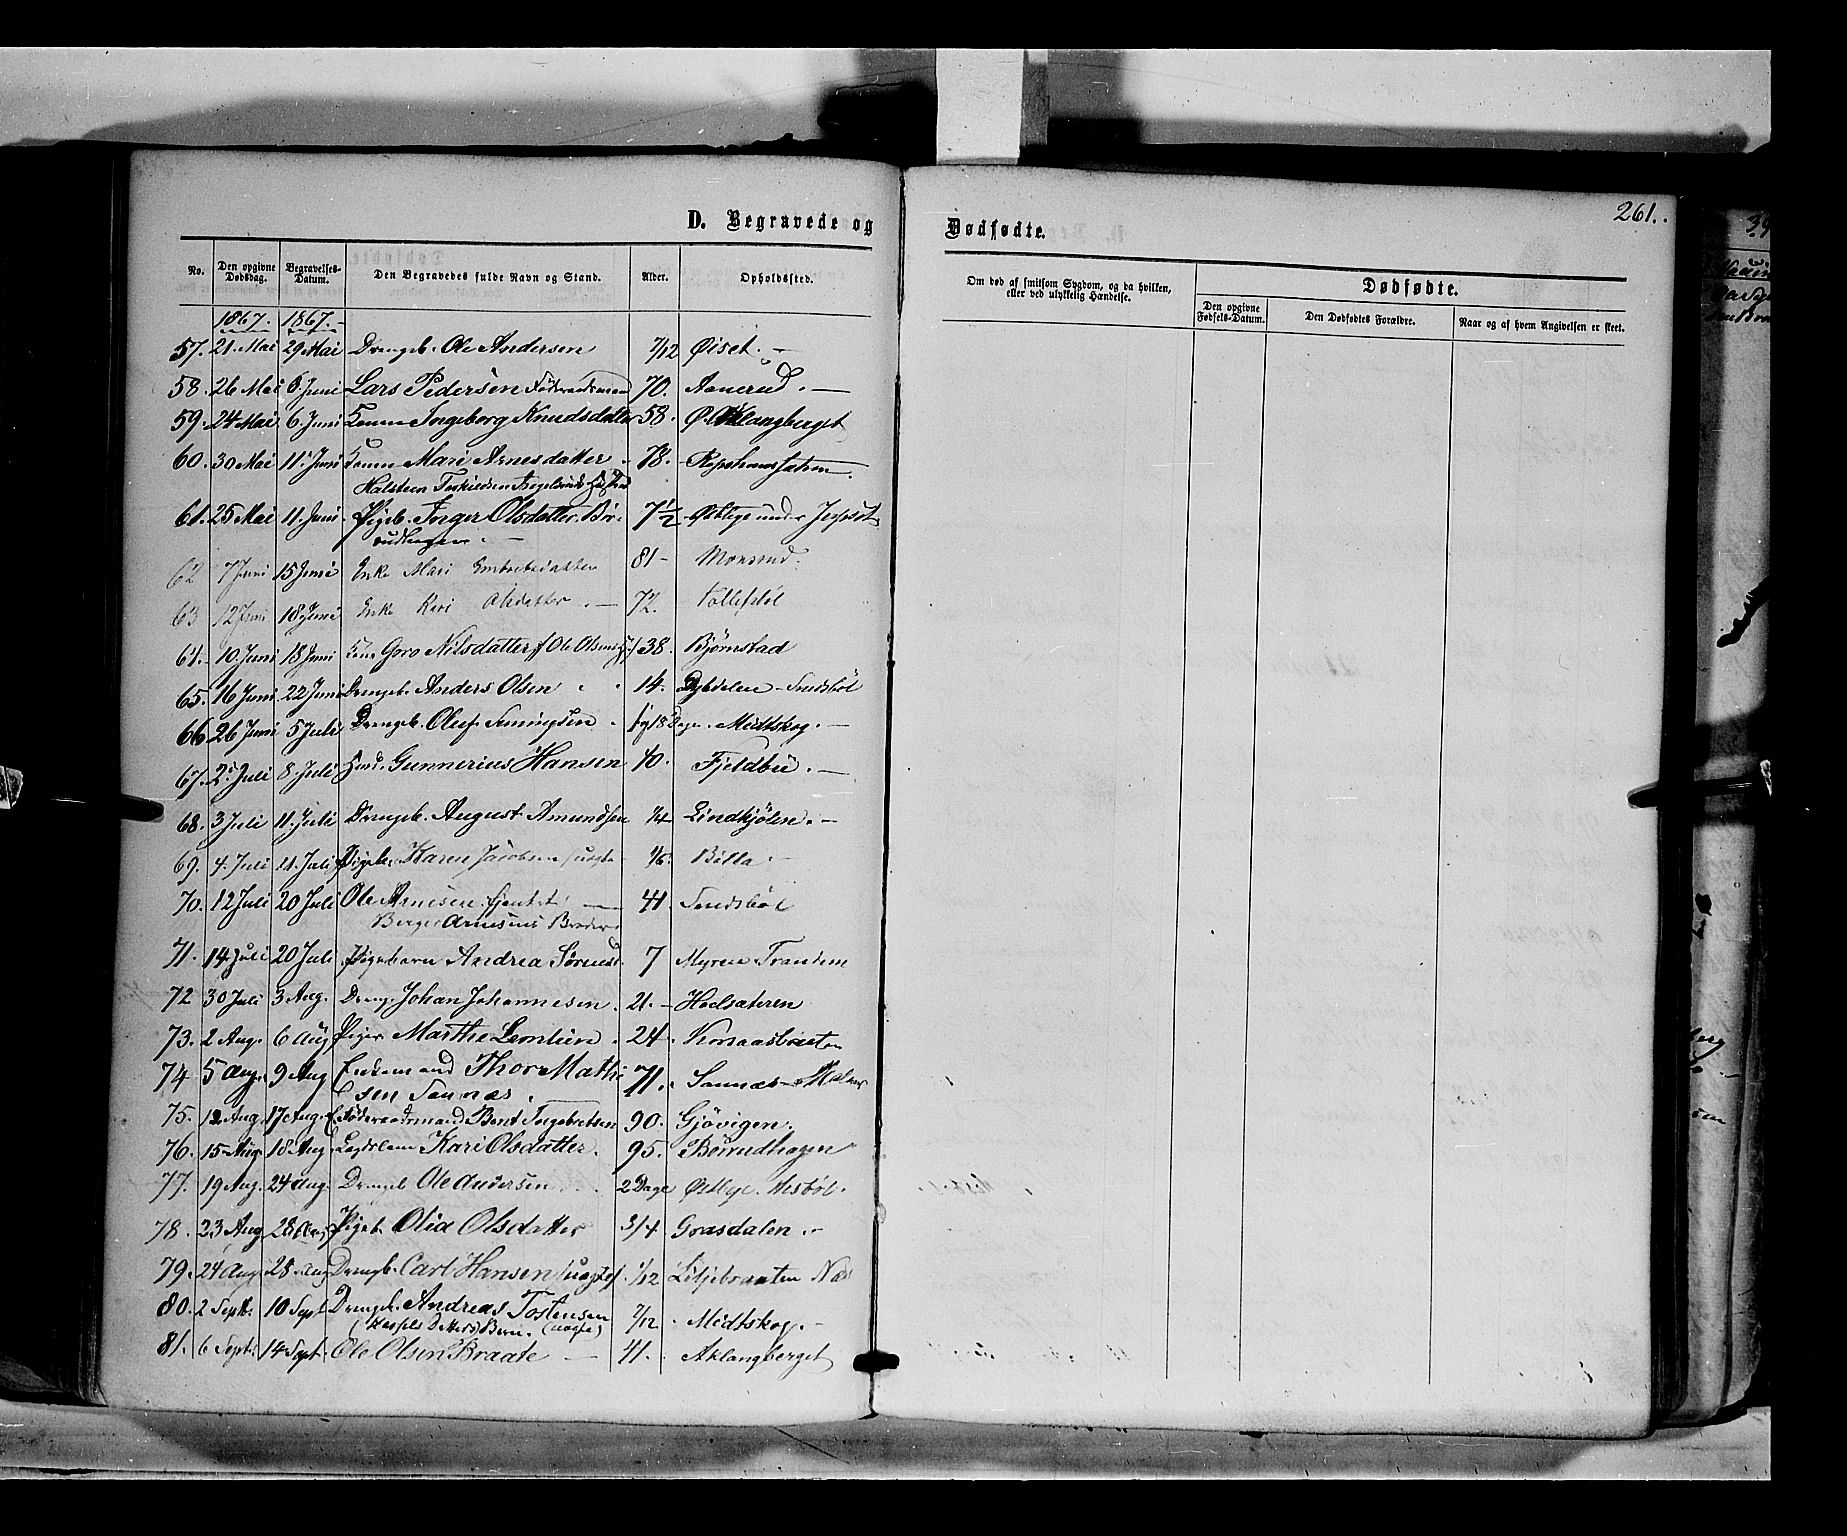 D. Begravede og
Dødfødte.
261.
No. Den opgivne Dødsdag. Begravelses-Datum. Den Begravedes fulde Navn og Stand. Alder. Opholdssted.
Om død af smitsom Sygdom, og da hvilken, eller ved ulykkelig Hændelse.
Dødfødte.
Den opgivne Fødsels-Datum. Den Dødfødtes Forældre. Naar og af hvem Angivelsen er skeet.
1867. 1867.
57. 21 Mai 29 Mai Drengeb. Ole Andersen 7/12 Øiset.
58. 26 Mai 6 Juni Lars Pedersen Føderaadsmand 70. Aanerud.
59. 24 Mai 6 Juni Kone Ingeborg Knudsdatter 58. Aklangberget
60. 30 Mai 11 Juni Kone Mari Arnesdatter 78.
Halsteen
61. 25 Mai 11 Juni Pigeb. Inger Olsdatter Bör-
udhagen 7 1/2 under
62 7 Juni 15 Juni Enke Mari Embretsdatter 81 Monsrud.
63 12 Juni 18 Juni Enke Kari Olsdatter 72. Tollefsböl
64. 10 Juni 18 Juni Kone Goro Nilsdatter Ole Olsens 38. Björnstad
65. 16 Juni 22 Juni Drengeb. Anders Olsen 14. Dybdalen
66 26 Juni 5 Juli Drengeb. Oluf 18 Dage. Midtskog.
67. 2 Juli 8 Juli Gunnerius Hansen 40. Fjeldbu.
68. 3 Juli 11. Juli Drengeb. August Amundsen 1/4 Lindkjölen.
69. 4. Juli 11. Juli Pigeb. Karen Jacobsen (uægte 1/6. Billa.
70. 12 Juli 20 Juli Ole Arnesen 41.
Berger Arnesens Broder
71. 14 Juli 20 Juli Pigebarn Andrea Sörensd. 7 Myren Trandem
72 30 Juli 3 Aug. Dreng. Johan Johannesen. 21. Hoelsæteren
73. 2 Aug. 6 Aug Pige Marthe Lemlien 24.
74 5 Aug. 9 Aug Enkemand Thor Mathi-
sen Sannæs. 71. Sannæs
75. 12 Aug. 17 Aug. Föderaadsmand Bent Ingebretsen 90. Gjövigen.
76. 15 Aug. 18 Aug. Lægdslem Kari Olsdatter. 95. Börrudhagen
77. 19 Aug. 24 Aug. Drengeb. Ole Andersen 2 Dage Østbye. Hesböl.
78. 23 Aug 28 Aug Pigeb. Olia Olsdatter 3/4 Grasdalen
79. 24 Aug. 28. Aug Drengb. Carl Hansen (uægtef. 1/12 Liljebraaten
80. 2 Septb. 10 Sept Drengeb. Andreas Tostensen
(uægte) 7/12 Midtskog.
81. 6 Sept. 14 Sept. Ole Olsen Braate 41. Aklangberget